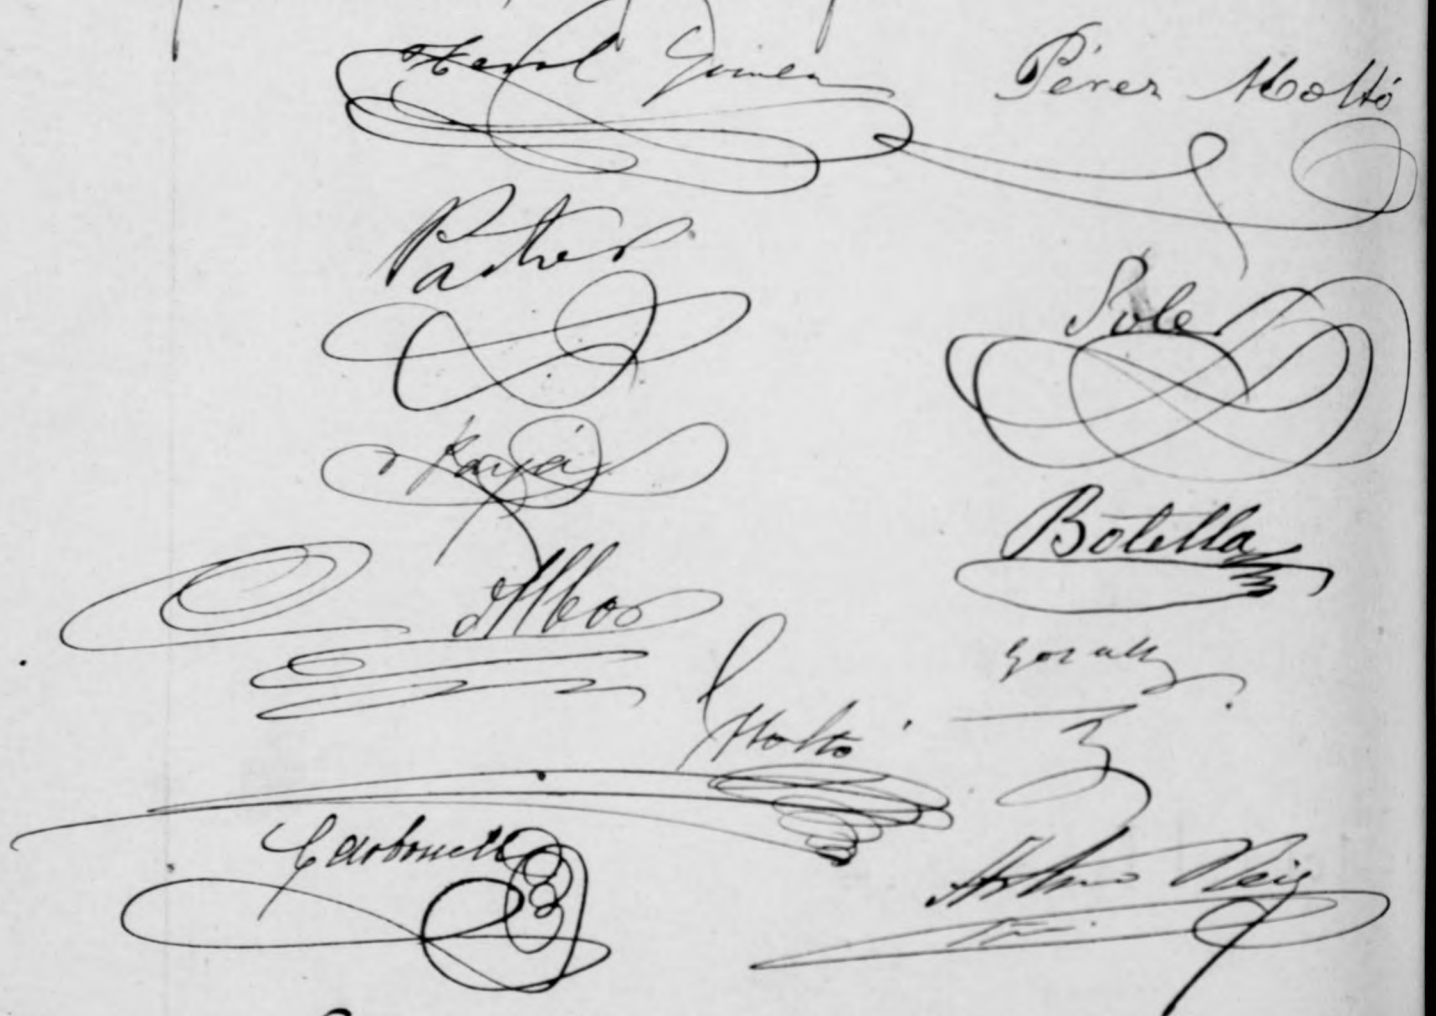 Pérez Moltó
Pastor
Soler
Payá
Botella
Albors
Gosálbez
Moltó
Carbonell
Arturo Reig